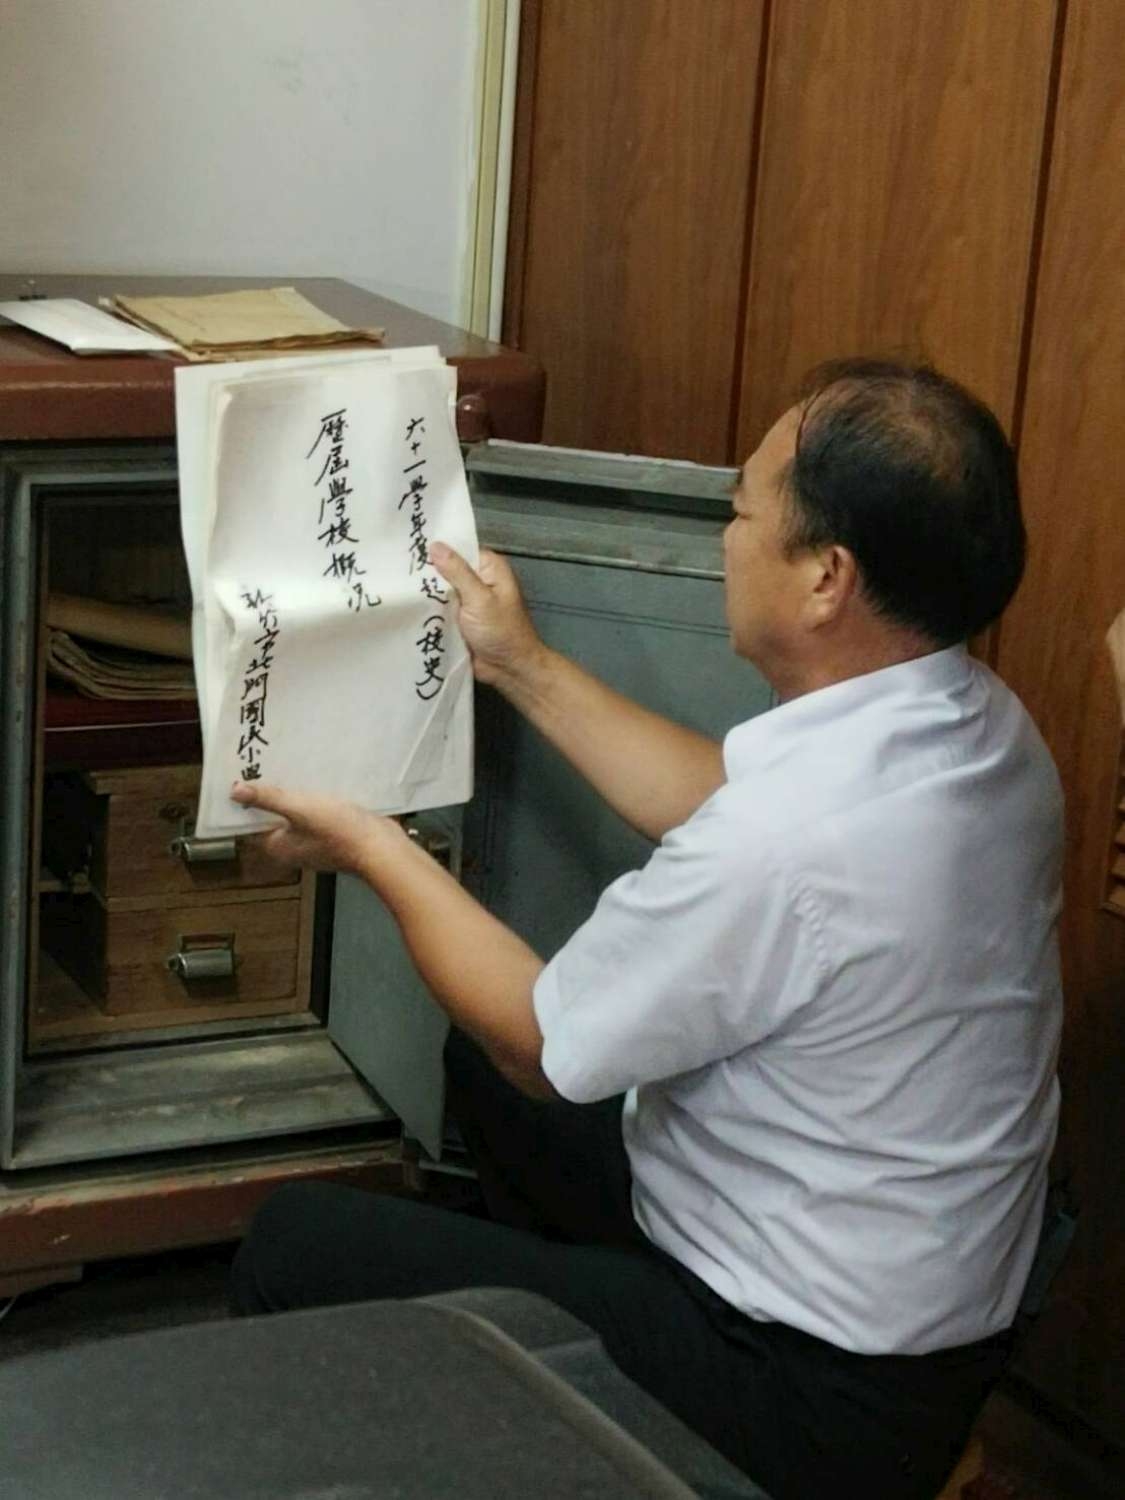 六十一學年度起（校史）
歷屆學校概況
新竹市北門國民小學